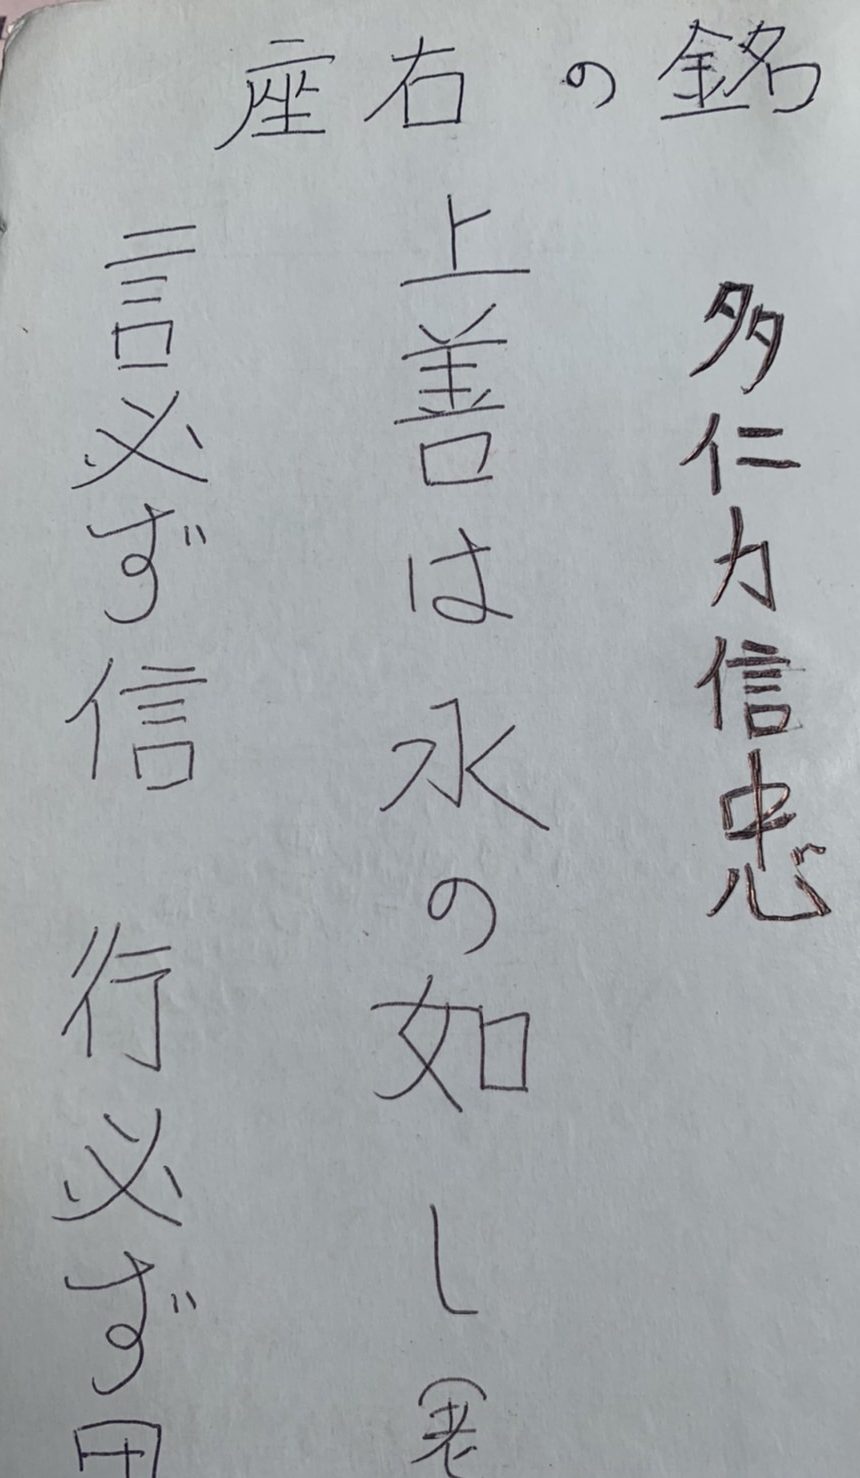 座右の銘
多仁力信忠
上善は水の如し(老
言必ず信 行必ず